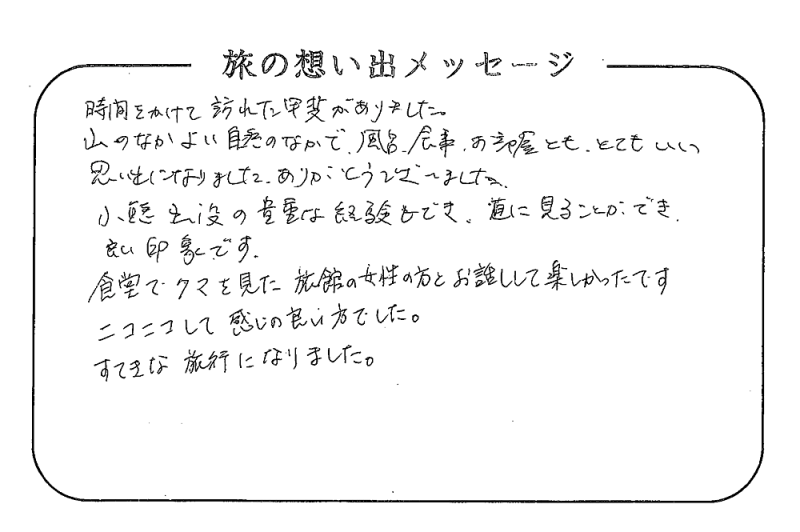 旅の想い出メッセージ
時間をかけて訪れた甲斐がありました。
山のなかよい自然のなかで、風呂、食事、お部屋とも、とてもいい
思い出になりました。ありがとうございました。
小熊出没の貴重な経験もでき、道に見ることができ、
良い印象です。
食堂でクマを見た旅館の女性の方とお話しして楽しかったです
ニコニコして感じの良い方でした。
すてきな旅行になりました。